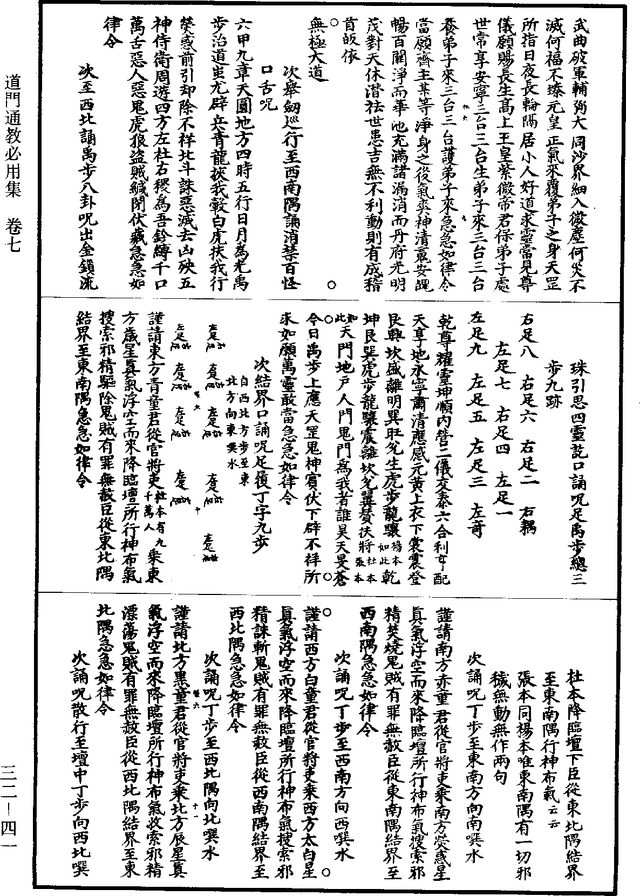 武曲破軍輔弼大周沙界細入微塵何災不
滅何福不臻元皇正氣來覆弟子之身天罡
所指日夜長輪隔居小人好道求靈當見尊
儀願賜長生高上玉皇紫微帝君保弟子處
世常享安寧三台三台生弟子來三台三台
養弟子來三台三台護弟子來急急如律令
當願齋主某等淨身之後氣爽神清靈安魄
暢百關淨而華池充滿諸漏消而丹府光明
茂對天休潛祛世患吉無不利動則有成稽
首皈依
無極大道
次舉劍巡行至西南隅誦消禁百怪
口舌呪
六甲九章天圓地方四時五行日月為光禹
步治道蚩尤辟兵青龍挾我轂白虎扶我行
熒惑前引却除不祥北斗誅惡滅去凶殃五
神侍衛周遊四方左社右稷為吾鈐縛千口
萬舌惡人惡鬼虎狼盜賊緘閉伏藏急急如
律令
次至西北誦禹步八卦呪出金鎖流
珠引思四靈訖口誦呪足禹步總三
步九跡
右足八 右足六 右足二 右耦
左足七 右足四 左足一
左足九 左足五 左足三 左奇
乾尊耀靈坤順內營二儀交泰六合利亨配
天享地永寧肅清應感元黃上衣下裳震登
艮興坎盛離明巽旺兌生虎步龍驤楊本如此乾
坤艮巽虎步龍驤震離坎兌翼贊扶將杜本張本
如此天門地戶人門鬼門為我者誰昊天旻蒼
今日禹步上應天罡鬼神賓伏下辟不祥所
求如願萬靈敢當急急如律令
次結界口誦呪足復丁字九步
自西北方步至東
北方向東噀水
謹請東方青童君從官將吏杜本有九千萬人乘東
方歲星真氣浮空而來降臨壇所行神布氣
搜索邪精驅除鬼賊有罪無赦臣從東北隅
結界至東南隅急急如律令
杜本降臨壇下臣從東北隅結界
至東南隅行神布氣云云
張本同楊本唯東南隅有一切邪
穢無動無作兩句
次誦呪丁步至東南方向南噀水
謹請南方赤童君從官將吏乘南方熒惑星
真氣浮空而來降臨壇所行神布氣搜索邪
精焚燒鬼賊有罪無赦臣從東南隅結界至
西南隅急急如律令
次誦呪丁步至西南方向西噀水
謹請西方白童君從官將吏乘西方太白星
真氣浮空而來降臨壇所行神布氣搜索邪
精誅斬鬼賊有罪無赦臣從西南隅結界至
西北隅急急如律令
次誦呪丁步至西北隅向北噀水
謹請北方黑童君從官將吏乘北方辰星真
氣浮空而來降臨壇所行神布氣收索邪精
漂蕩鬼賊有罪無赦臣從西北隅結界至東
北隅急急如律令
次誦呪散行至壇中丁步向西北噀
道門通教必用集 卷七
三二—四一